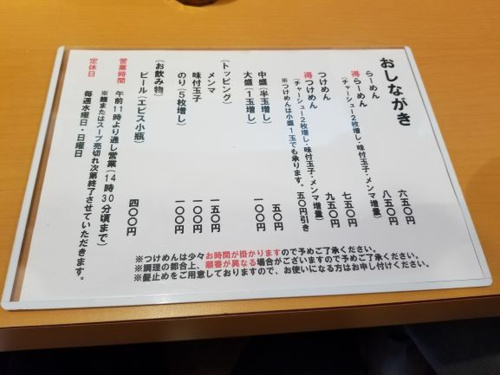 おしながき
らーめん 六五〇円
得らーめん 八五〇円
(チャーシュー2枚増し・味付玉子・メンマ増量)
つけめん 七五〇円
得つけめん 九五〇円
(チャーシュー2枚増し・味付玉子・メンマ増量)
※つけめんは小盛1玉でも承ります。五〇円引き
中盛(半玉増し) 五〇円
大盛(1玉増し) 一〇〇円
【トッピング】
メンマ 一五〇円
味付玉子 一〇〇円
のり(5枚増し) 一〇〇円
【お飲み物】
ビール(エビス小瓶) 四〇〇円
営業時間 午前11時より通し営業(14時30分頃まで)
※麺またはスープ売切れ次第終了させていただきます。
定休日 毎週水曜日・日曜日
※つけめんは少々、お時間が掛かりますので予めご了承ください。
※調理の都合上、順番が異なる場合がございますので予めご了承ください。
※髪止めのご用意しておりますので、お使いになる方はお申し付けください。